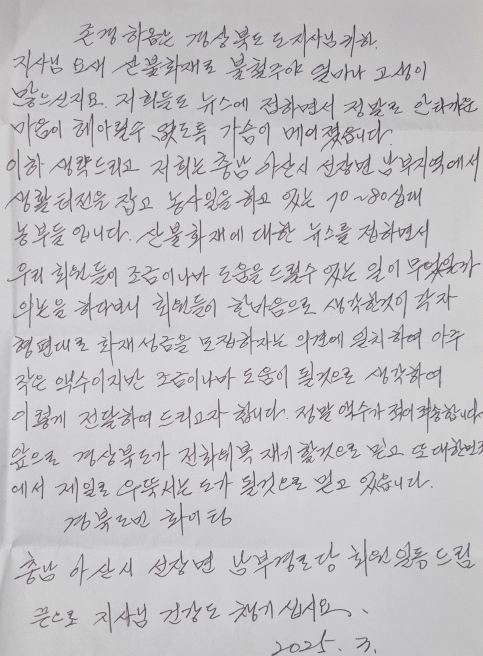 존경하옵는 경상북도 도지사님 귀하.
지사님 요새 산불화재로 불철주야 얼마나 고생이
많으신지요. 저희들도 뉴스에 접하면서 정말로 안타까운
마음이 헤아릴수 없도록 가슴이 메어졌습니다.
이하 생략드리고 저희는 충남 아산시 선장면 남부지역에서
생활터전을 잡고 농사일을 하고 있는 70~80십대
농부들 입니다. 산불화재에 대한 뉴스를 접하면서
우리 회원들이 조금이나마 도움을 드릴수 있는 일이 무엇일가
의논을 하다보니 회원들이 한마음으로 생각한것이 각자
형편대로 화재성금을 모집하자는 의견에 일치하여 아주
작은 액수이지만 조금이나마 도움이 될것으로 생각하여
이렇게 전달하여 드리고자 합니다. 정말 액수가 적어 죄송합니다.
앞으로 경상북도가 전화위복 재기할것으로 믿고 또 대한민국
에서 제일로 우뚝서는 도가 될것으로 믿고 있습니다.
경북도민 화이팅
충남 아산시 선장면 남부경로당 회원일동 드림
끝으로 지사님 건강도 챙기십시요.
2025. 3.